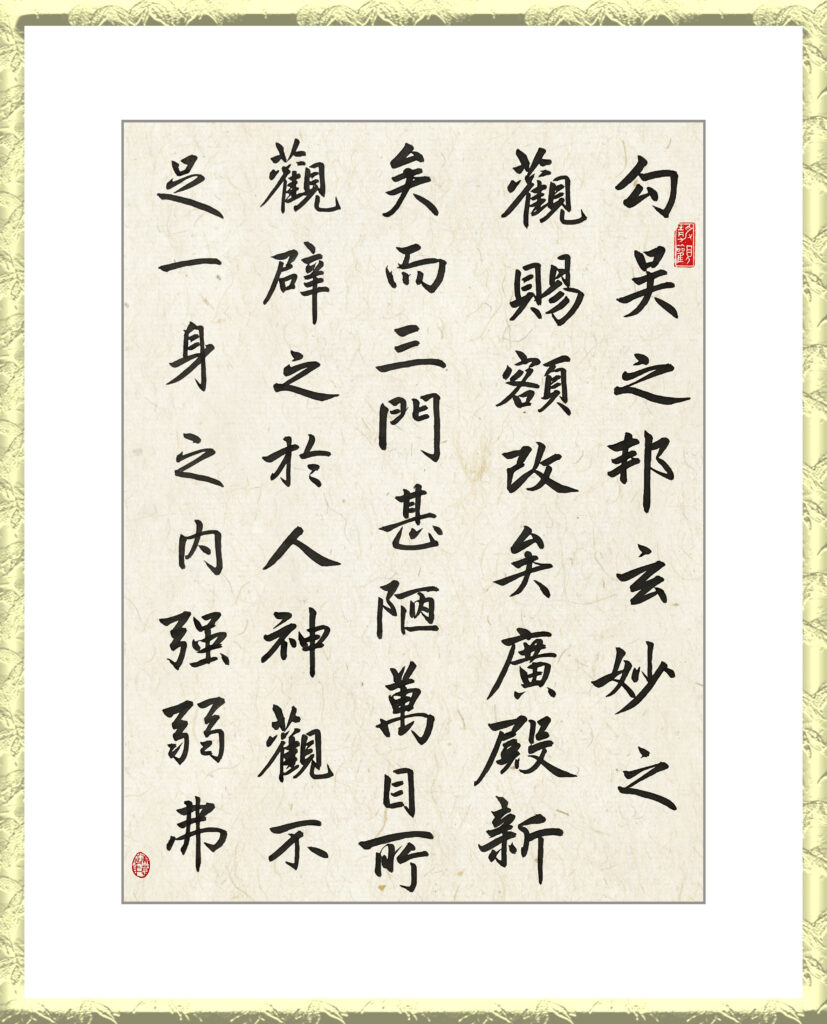 勾吴之邦玄妙之
觀賜額改矣廣殿新
矣而三門甚陋萬目所
觀辟之於人神觀不
足一身之内强弱弗